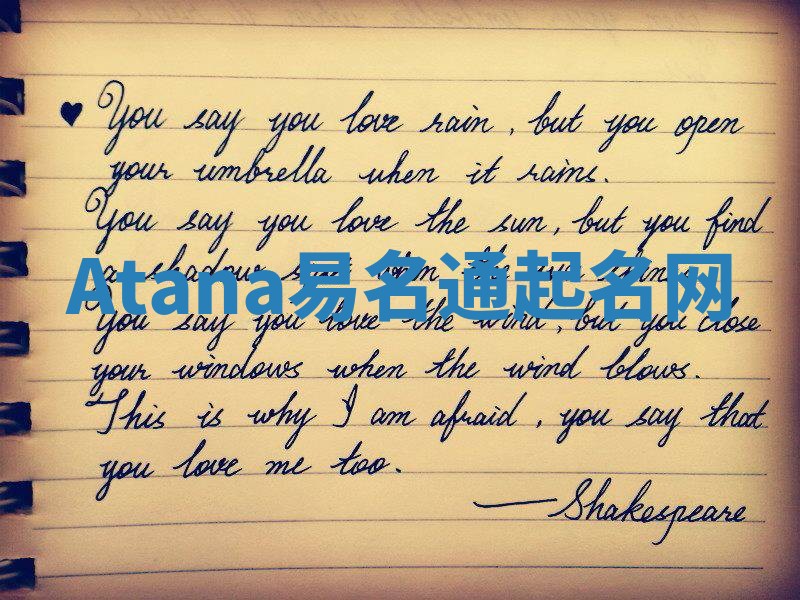 ♥ You say you love rain, but you open
your umbrella when it rains.
You say you love the sun, but you find
a shadow spot when the sun shines.
Atana易名通起名网
You say you love the wind, but you close
your windows when the wind blows.
This is why I am afraid, you say that
you love me too.
— Shakespeare